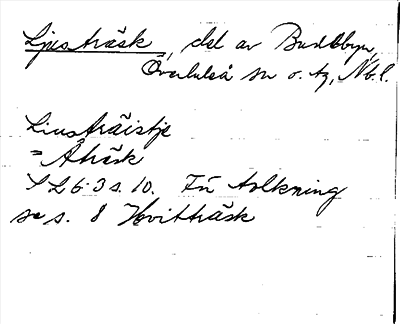 Ljusträsk, del av Buddbyn,
Överluleå sn o. tg, Nb.l.
Liusträistje
= Åträsk
S L 6:3 s. 10. För tolkning
se s. 8 Hvitträsk